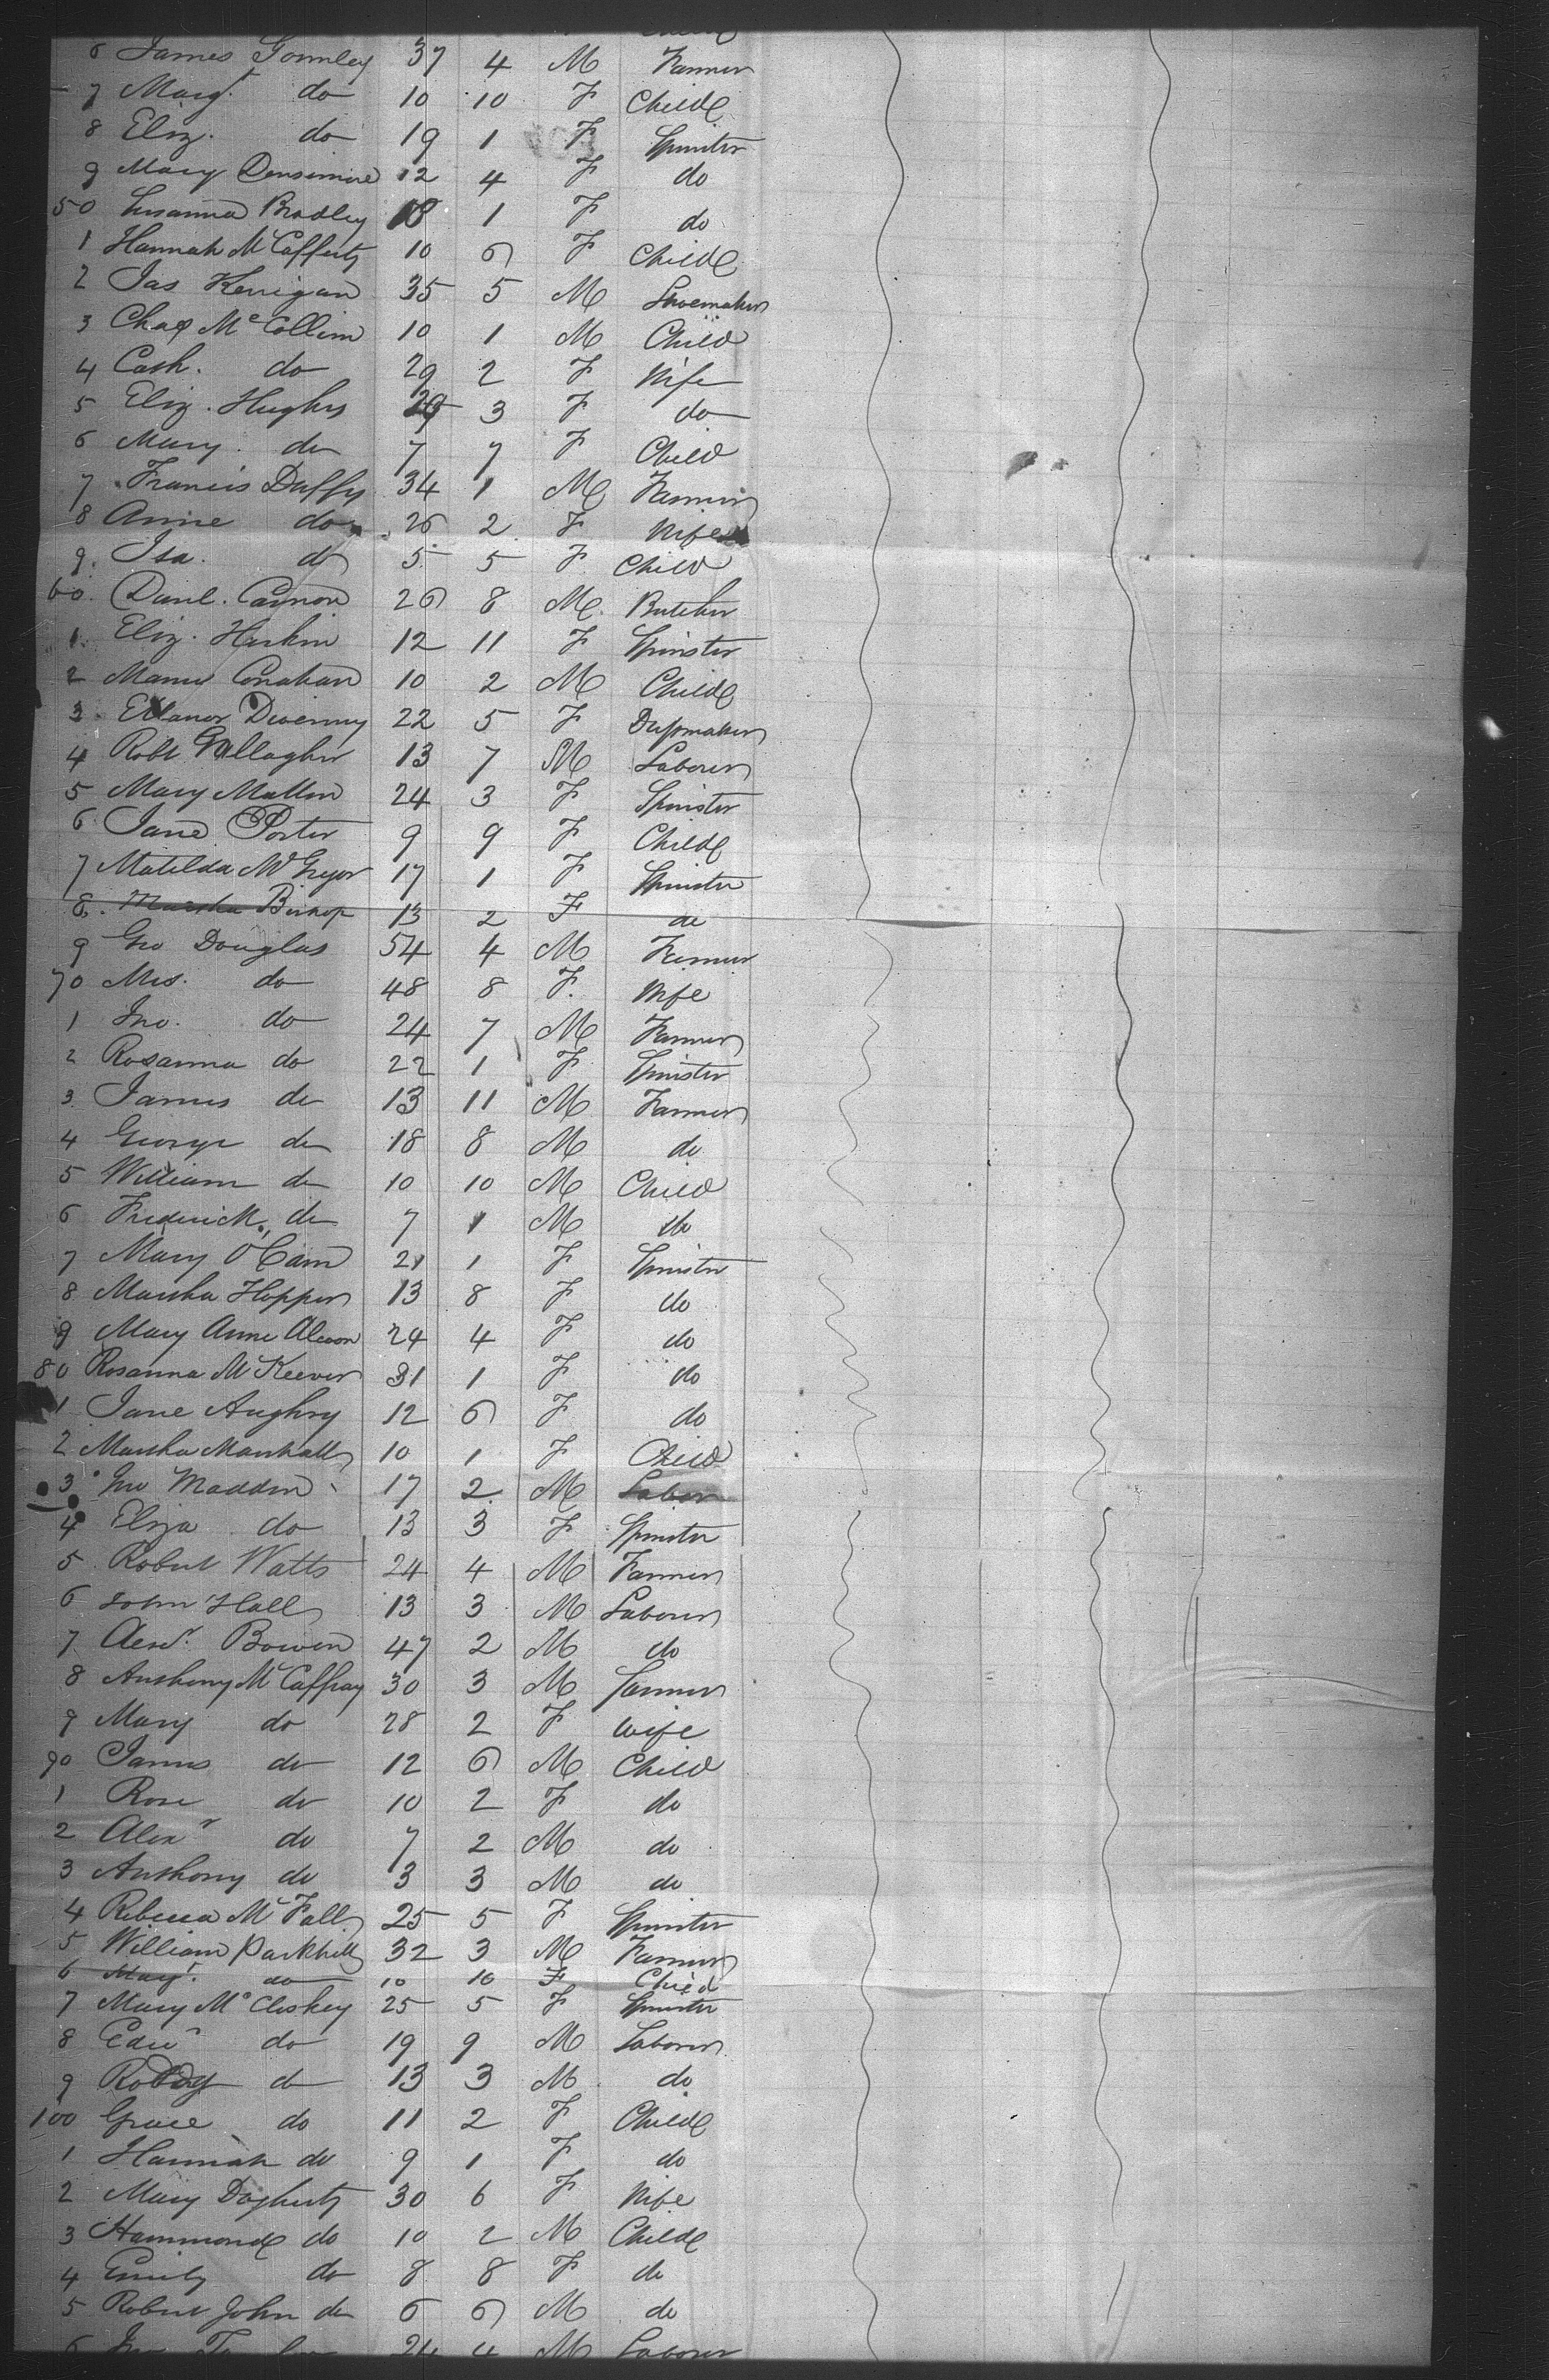 6 James Gormley 37 4 M Farmer
7 Margt. do 10 10 F Child
8 Eliz. do 19 1 F Spinster
9 Mary Densimire 12 4 F do
50 Susanna Bradley 18 1 F do
1 Hannah McCafferty 10 6 F Child
2 Jas Kerrigan 35 5 M Shoemaker
3 Chas McCollim 10 1 M Child
4 Cath. do 29 2 F Wife
5 Eliz. Hughes 29 3 F do
6 Mary do 7 7 F Child
7 Francis Duffy 34 1 M Farmer
8 Anne do 26 2 F Wife
9 Isa. do 5 5 F Child
60 Danl. Cannon 26 8 M Butcher
1 Eliz. Harkin 12 11 F Spinster
2 Manus Conahan 10 2 M Child
3 Elanor Divenny 22 5 F Dressmaker
4 Robt Gallagher 13 7 M Laborer
5 Mary Mallon 24 3 F Spinster
6 Jane Porter 9 9 F Child
7 Matilda McGregor 17 1 F Spinster
8 Martha Bishop 13 2 F do
9 Geo Douglas 54 4 M Farmer
70 Mrs. do 48 8 F Wife
1 Jno. do 24 7 M Farmer
2 Rosanna do 22 1 F Spinster
3 James do 13 11 M Farmer
4 George do 18 8 M do
5 William do 10 10 M Child
6 Frederick do 7 1 M do
7 Mary O'Cain 21 1 F Spinster
8 Martha Hopper 13 8 F do
9 Mary Anne 24 4 F do
80 Rosanna McKeever 31 1 F do
1 Jane Aughry 12 6 F do
2 Martha Marshall 10 1 F Child
3 Madden 17 2 M Labor
4 Eliza do 13 3 F Spinster
5 Robert Watts 24 4 M Farmer
6 John Hall 13 3 M Laborer
7 Bowen 47 2 M do
8 Anthony McCaffray 30 3 M Farmer
9 Mary do 28 2 F Wife
90 James do 12 6 M Child
1 Rose do 10 2 F do
2 Alexr do 7 2 M do
3 Anthony do 3 3 M do
4 Rebecca McFall 25 5 F Spinster
5 William Parkhill 32 3 M Farmer
6 Margt. do 10 10 F Child
7 Mary McCloskey 25 5 F Spinster
8 Edwd do 19 9 M Laborer
9 Roddy do 13 3 M do
100 Grace do 11 2 F Child
1 Hannah do 9 1 F do
2 Mary Dogherty 30 6 F Wife
3 Hammond do 10 2 M Child
4 Emily do 8 8 F do
5 Robert John do 6 6 M do
6 24 4 M Laborer